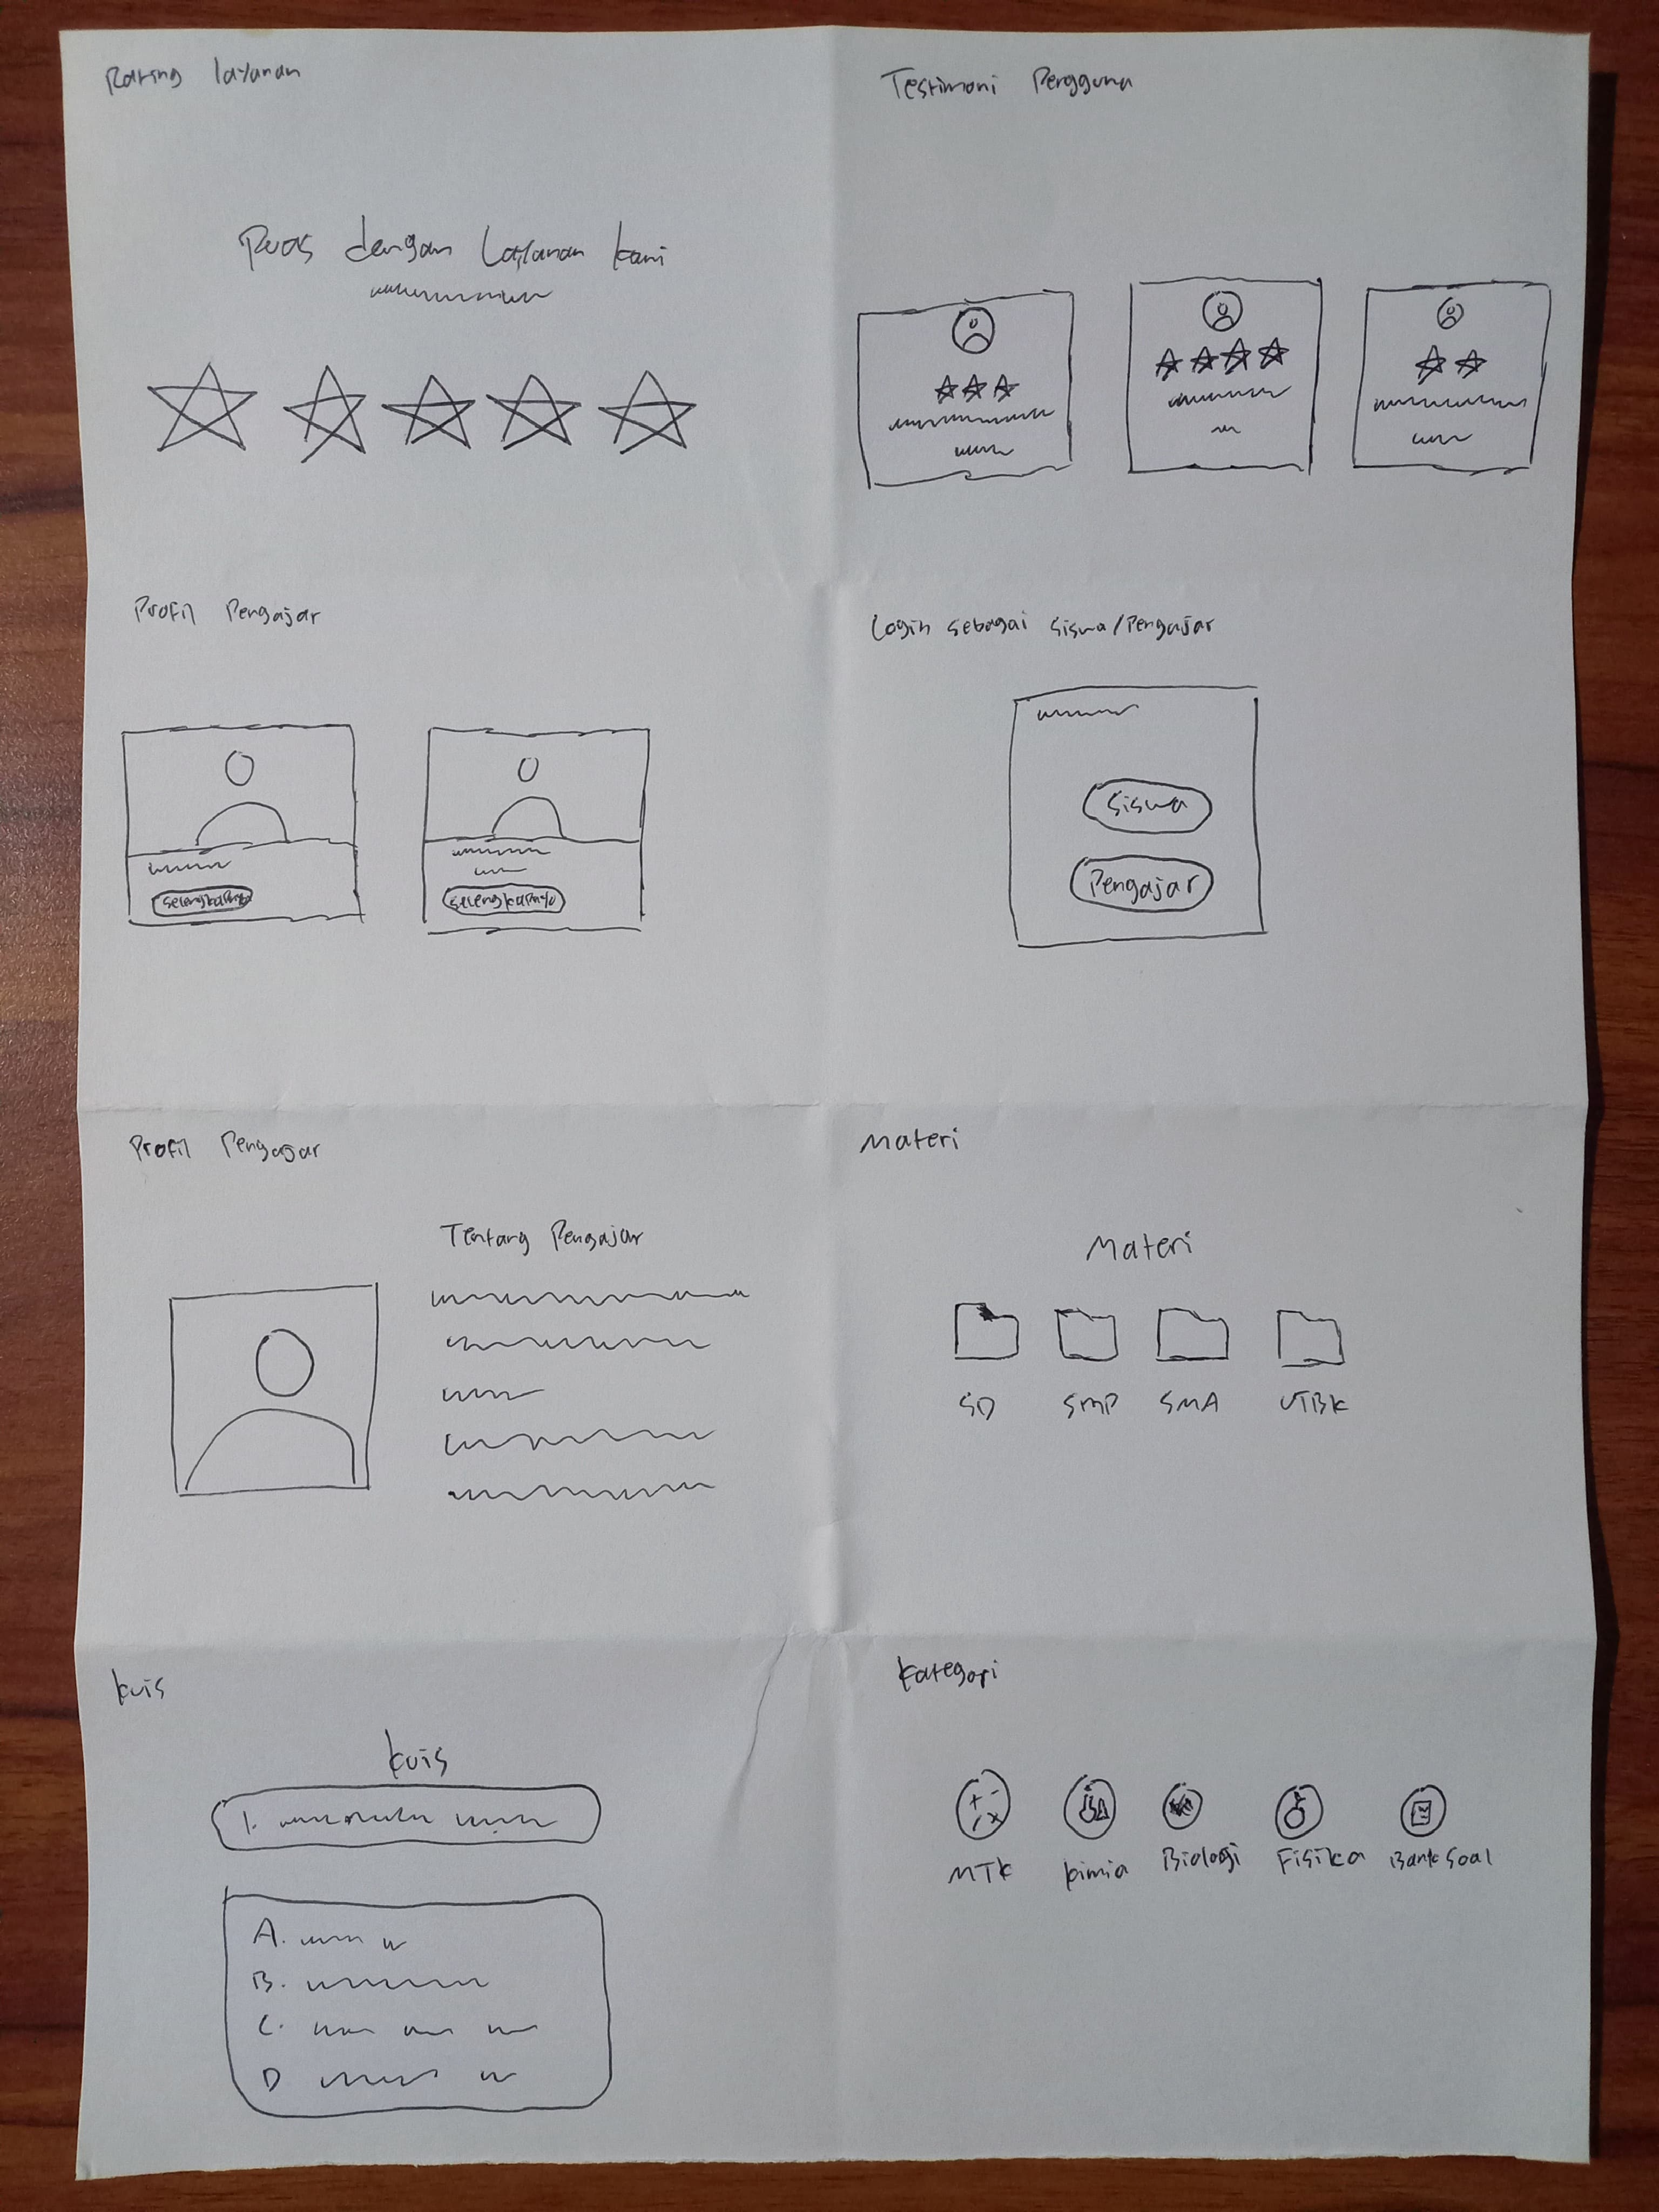 Rating layanan
Puas dengan Layanan kami
Testimoni Pengguna
Profil Pengajar
Selengkapnya
Selengkapnya
Login sebagai Siswa/Pengajar
Siswa
Pengajar
Profil Pengajar
Tentang Pengajar
Materi
Materi
SD SMP SMA UTBK
kuis
kuis
1.
A.
B.
C.
D
Kategori
+ -
/ x
MTK kimia Biologi Fisika Bank Soal